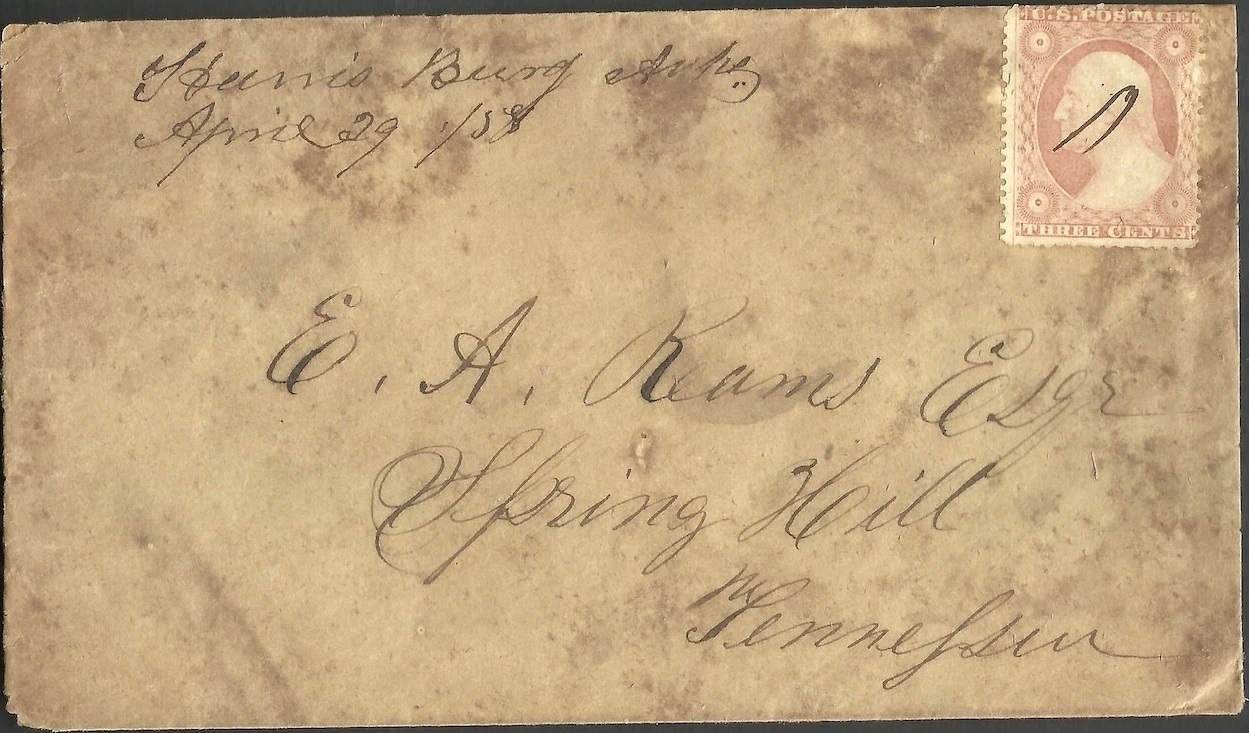 Harris Burg Arks
April 29 /58
U.S. POSTAGE
THREE CENTS
E. A. Reams Esqr
Spring Hill
Tennessee